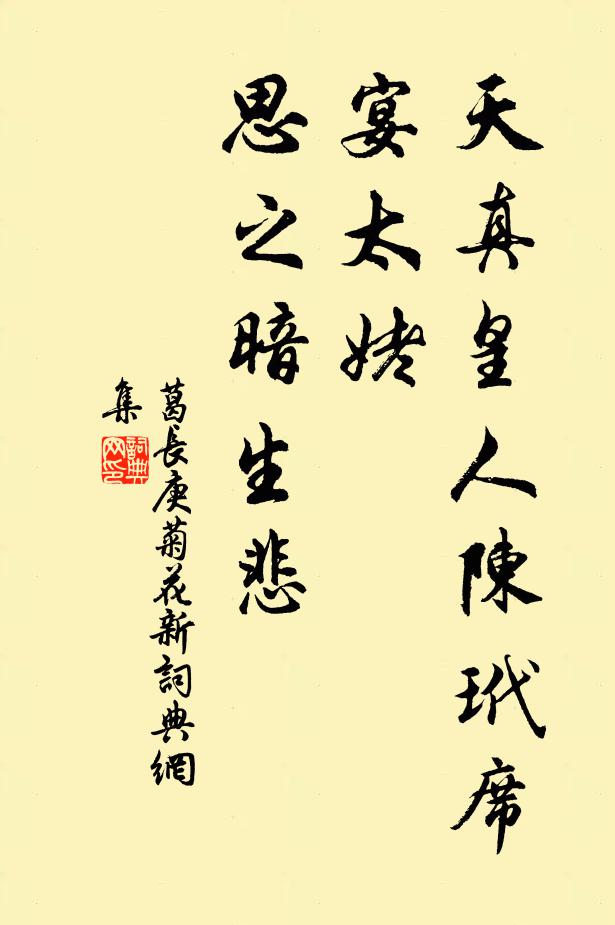 天真皇人陳玳席
宴太姥
思之暗生悲
葛長庚菊花新詞典網
集
詞典網印